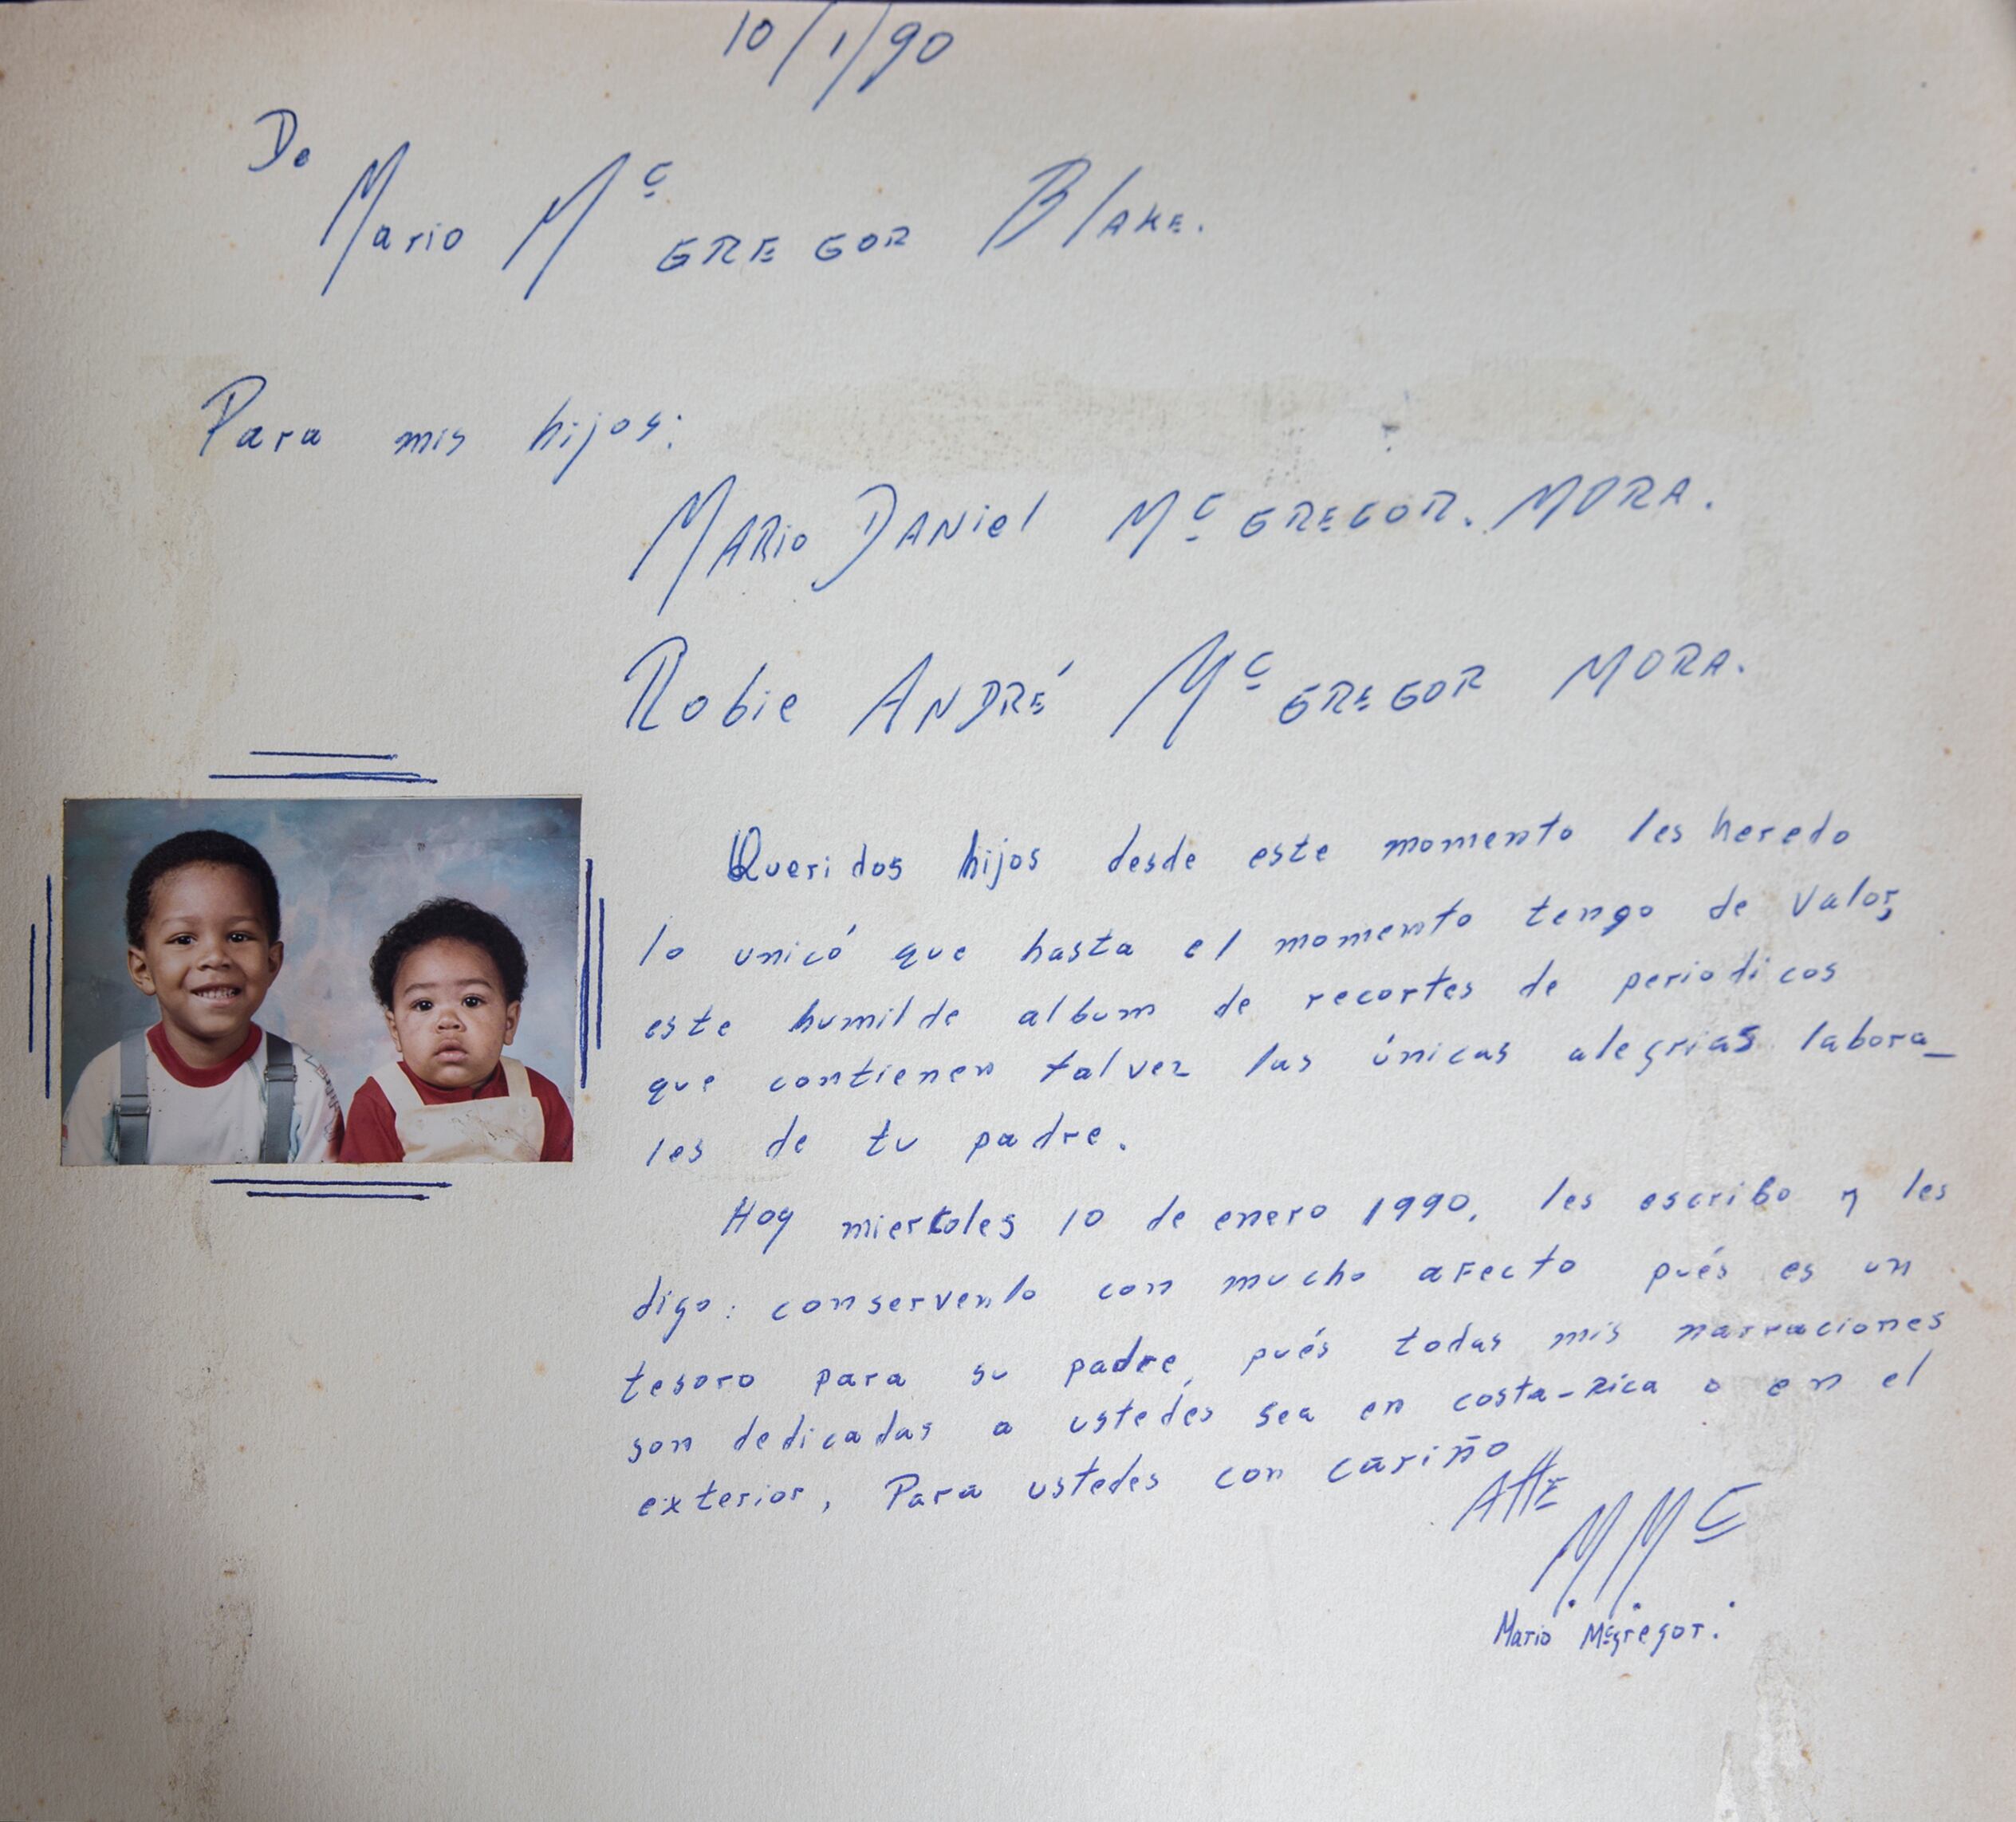 10/1/90
De
Mario Mc GREGOR Blake.
Para mis hijos:
MARio DANiel Mc GREGOR. MORA.
Robie ANDRÉ Mc GREGOR MORA.
Queridos hijos desde este momento les heredo
lo unicó que hasta el momento tengo de valor,
este humilde album de recortes de periodicos
que contienen talvez las únicas alegrias labora_
les de tu padre.
Hoy miercoles 10 de enero 1990, les escribo y les
digo: conservenlo con mucho afecto pués es un
tesoro para su padre, pués todas mis narraciones
son dedicadas a ustedes sea en costa-Rica o en el
exterior, Para ustedes con cariño
Atte
MMC
Mario Mcgregor.